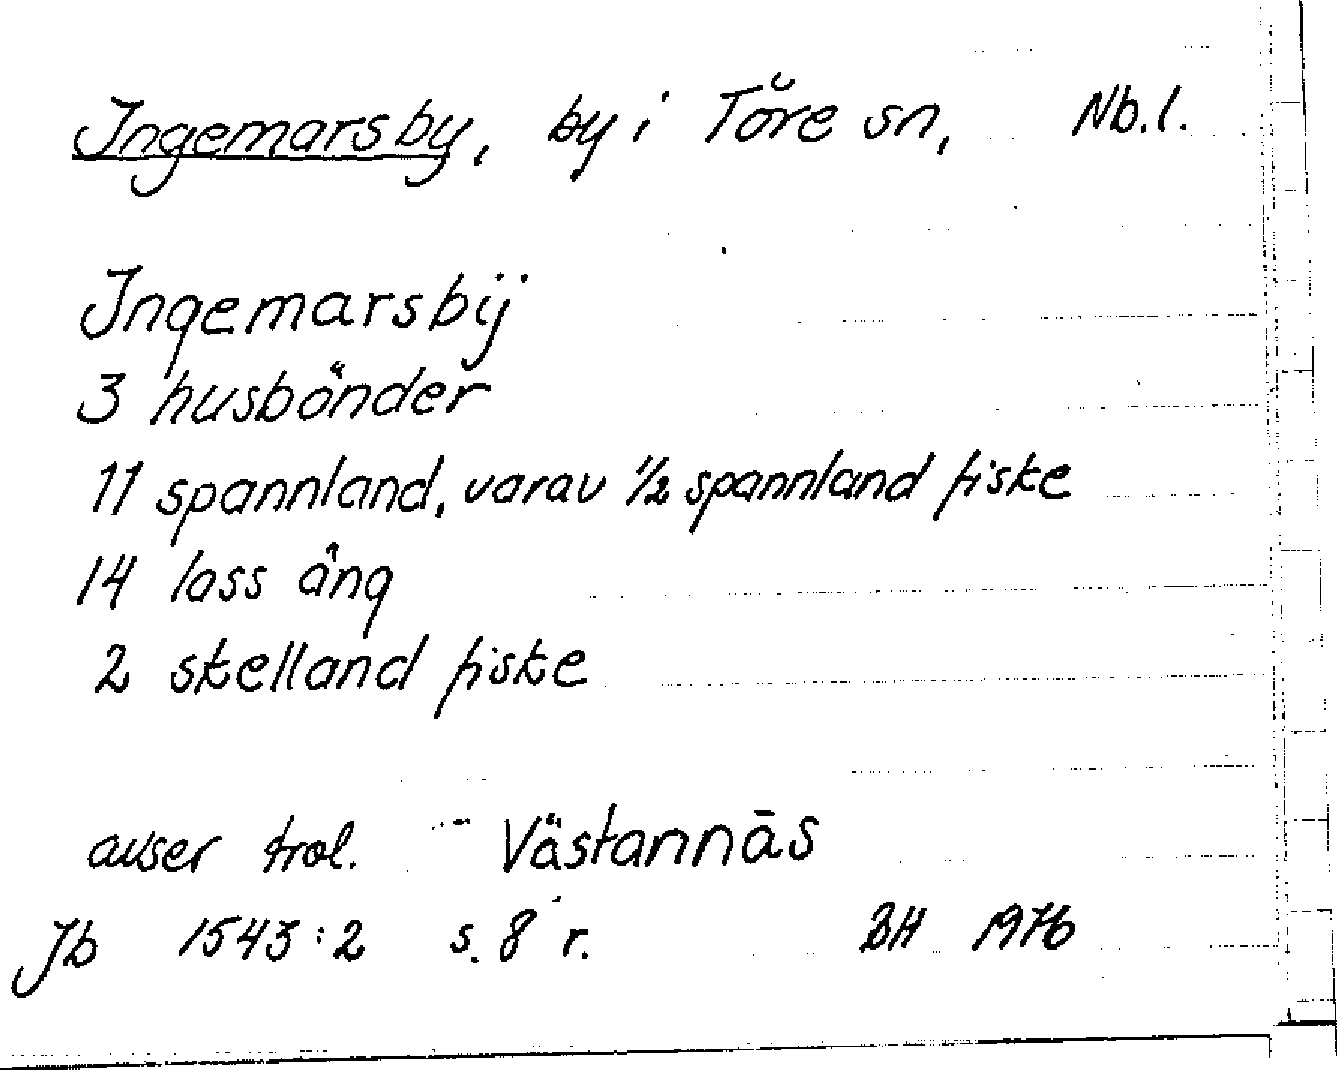 Ingemarsby, by i Töre sn, Nb.l.
Ingemarsbÿ
3 husbönder
11 spannland, varav 1/2 spannland fiske
14 lass äng
2 skelland fiske
avser trol. Västannäs
Jb 1543:2 s. 8 r. BH 1976